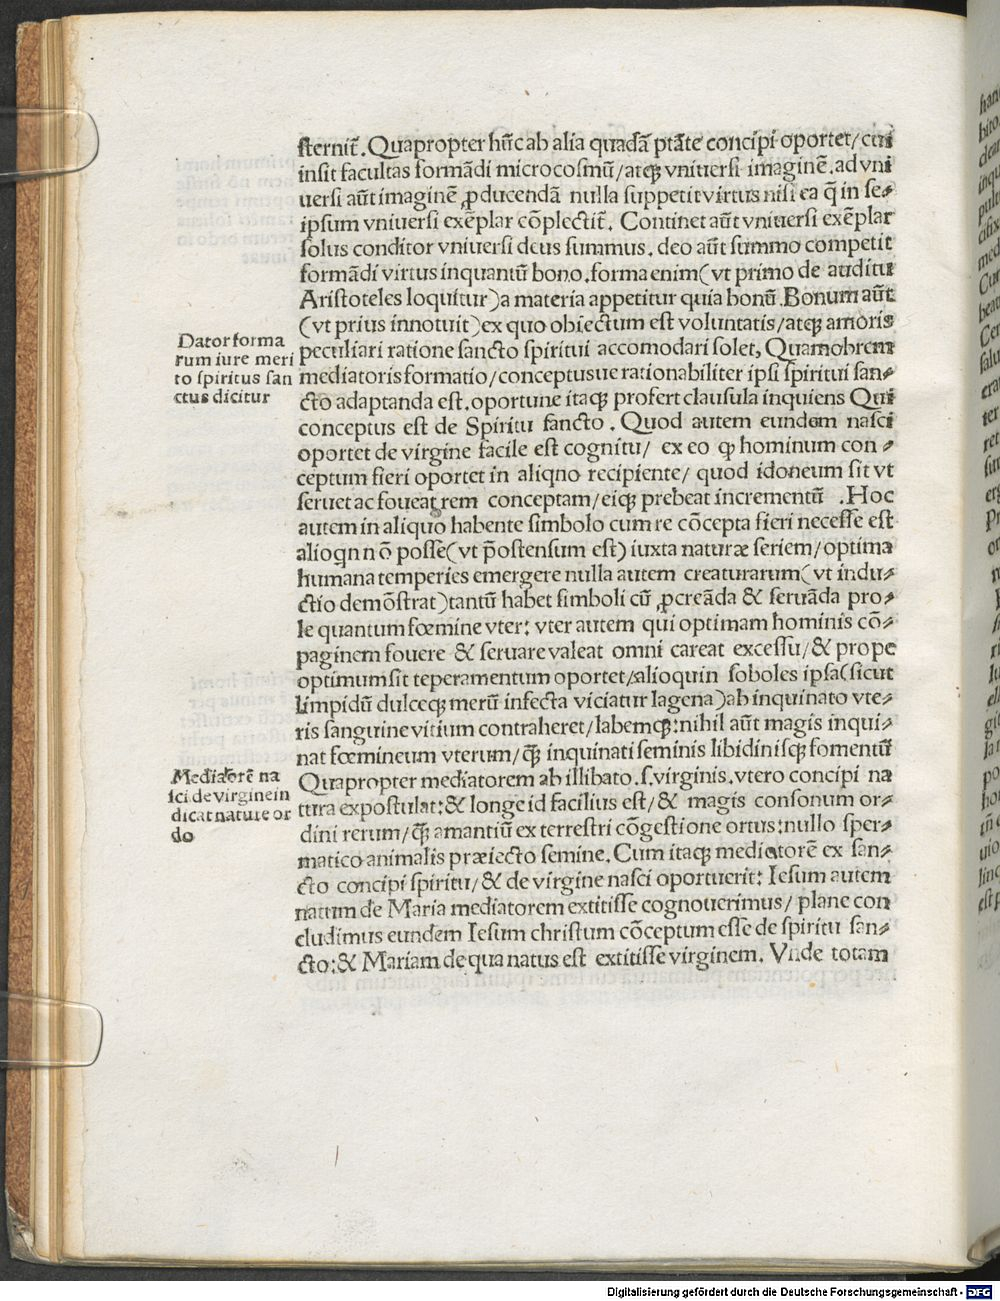 ſternit̄. Quapropter hūc ab alia quadā ptāte concipi oportet/cui
inſit facultas formādi microcoſmū/atqꝫ vniuerſi imaginē. ad vni
uerſi aūt imaginē ꝓducendā nulla ſuppetit virtus niſi ea q̄ in ſe⸗
ipſum vniuerſi exēplar cōplectit̄. Continet aūt vniuerſi exēplar
ſolus conditor vniuerſi deus ſummus. deo aūt ſummo competit
formādi virtus inquantū bono. forma enim (vt primo de auditu
Ariſtoteles loquitur) a materia appetitur quia bonū. Bonum aūt
(vt prius innotuit) ex quo obiectum eſt voluntatis/atqꝫ amoris
peculiari ratione ſancto ſpiritui accomodari ſolet, Quamobrem
mediatoris formatio/conceptusue rationabiliter ipſi ſpirituī ſan⸗
cto adaptanda eſt. oportune itaqꝫ profert clauſula inquiens Qui
conceptus eſt de Spiritu ſancto. Quod autem eundem naſci
oportet de virgine facile eſt cognitu/ ex eo ꝙ hominum con⸗
ceptum fieri oportet in aliqno recipiente/ quod idoneum ſit vt
ſeruet ac foueat rem conceptam/eiqꝫ prebeat incrementū. Hoc
autem in aliquo habente ſimbolo cum re cōcepta fieri neceſſe eſt
alioqn nō poſſe (vt p̄oſtenſum eſt) iuxta naturæ ſeriem/optima
humana temperies emergere nulla autem creaturarum (vt indu⸗
ctio demōſtrat) tantū habet ſimboli cū ꝓcreāda & ſeruāda pro⸗
le quantum fœmine vter: vter autem qui optimam hominis cō⸗
paginem fouere & ſeruare valeat omni careat exceſſu/& prope
optimum ſit teperamentum oportet/alioquin ſoboles ipſa (ſicut
limpidū dulceqꝫ merū infecta viciatur lagena) ab inquinato vte⸗
ris ſanguine vitium contraheret/labemqꝫ: nihil aūt magis inqui⸗
nat fœmineum vterum/ꝗ̄ inquinati ſeminis libidiniſqꝫ fomentū
Quapropter mediatorem ab illibato .ſ. virginis. vtero concipi na
tura expoſtulat: & longe id facilius eſt/& magis conſonum or⸗
dini rerum/ꝗ̄ amantiū ex terreſtri cōgeſtione ortus: nullo ſper⸗
matico animalis præiecto ſemine. Cum itaqꝫ mediatorē ex ſan⸗
cto concipi ſpiritu/& de virgine naſci oportuerit: Ieſum autem
natum de Maria mediatorem extitiſſe cognouerimus/ plane con
cludimus eundem Ieſum chriſtum cōceptum eſſe de ſpiritu ſan⸗
cto: & Mariam de qua natus eſt extitiſſe virginem. Vnde totam
Dator forma
rum iure meri
to ſpiritus ſan
ctus dicitur
Mediatorē na
ſci de virgine in
dicat nature or
do
Digitalisierung gefördert durch die Deutsche Forschungsgemeinschaft - DFG